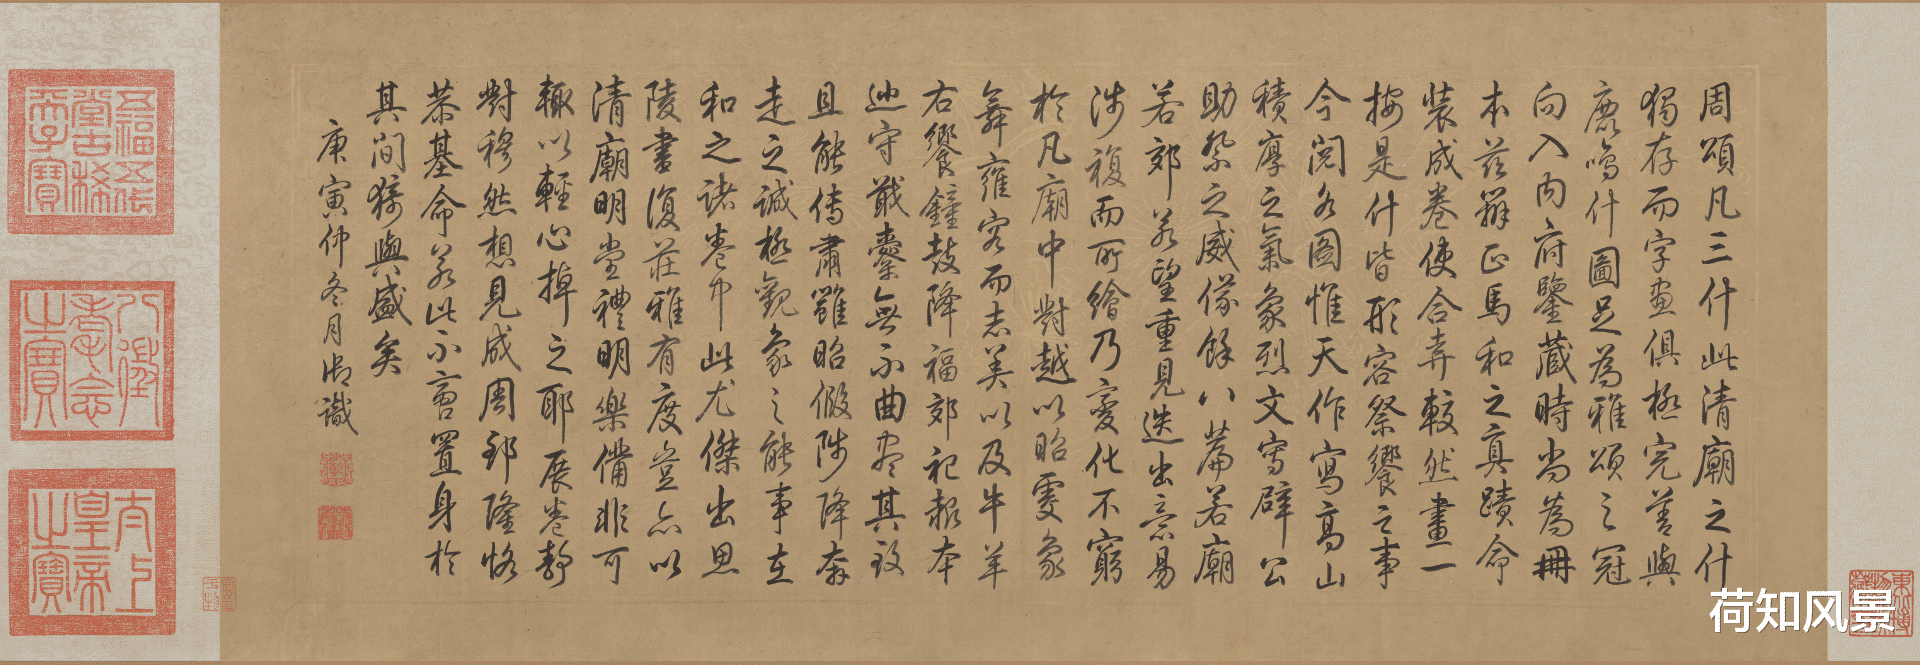 周頌凡三什此清廟之什
獨存而字畫俱極完善與
鹿鳴什圖足為雅頌之冠
向入內府鑒藏時尚為冊
本茲辨正馬和之真蹟命
裝成卷使合弆較然畫一
按是什皆形容祭饗之事
今閱各圖惟天作寫高山
積厚之氣象烈文寫辟公
助祭之威儀餘八篇若廟
若郊若望重見迭出意易
涉複而所繪乃變化不窮
於凡廟中對越以昭雯象
舞雍容而志美以及牛羊
右饗鐘鼓降福郊祀報本
逑守戢櫜無不曲盡其致
且能傳肅雝昭假陟降奔
走之誠極觀象之能事在
和之諸卷中此尤傑出思
陵書復莊雅有度豈亦以
清廟明堂禮明樂備非可
輒以輕心掉之耶展卷靜
對穆然想見成周郅隆恪
恭基命若此不啻置身於
其間猗與盛矣
庚寅仲冬月御識
五福五代
堂古稀
天子寶
八徵
耄念
之寶
太上
皇帝
之寶
荷知风景